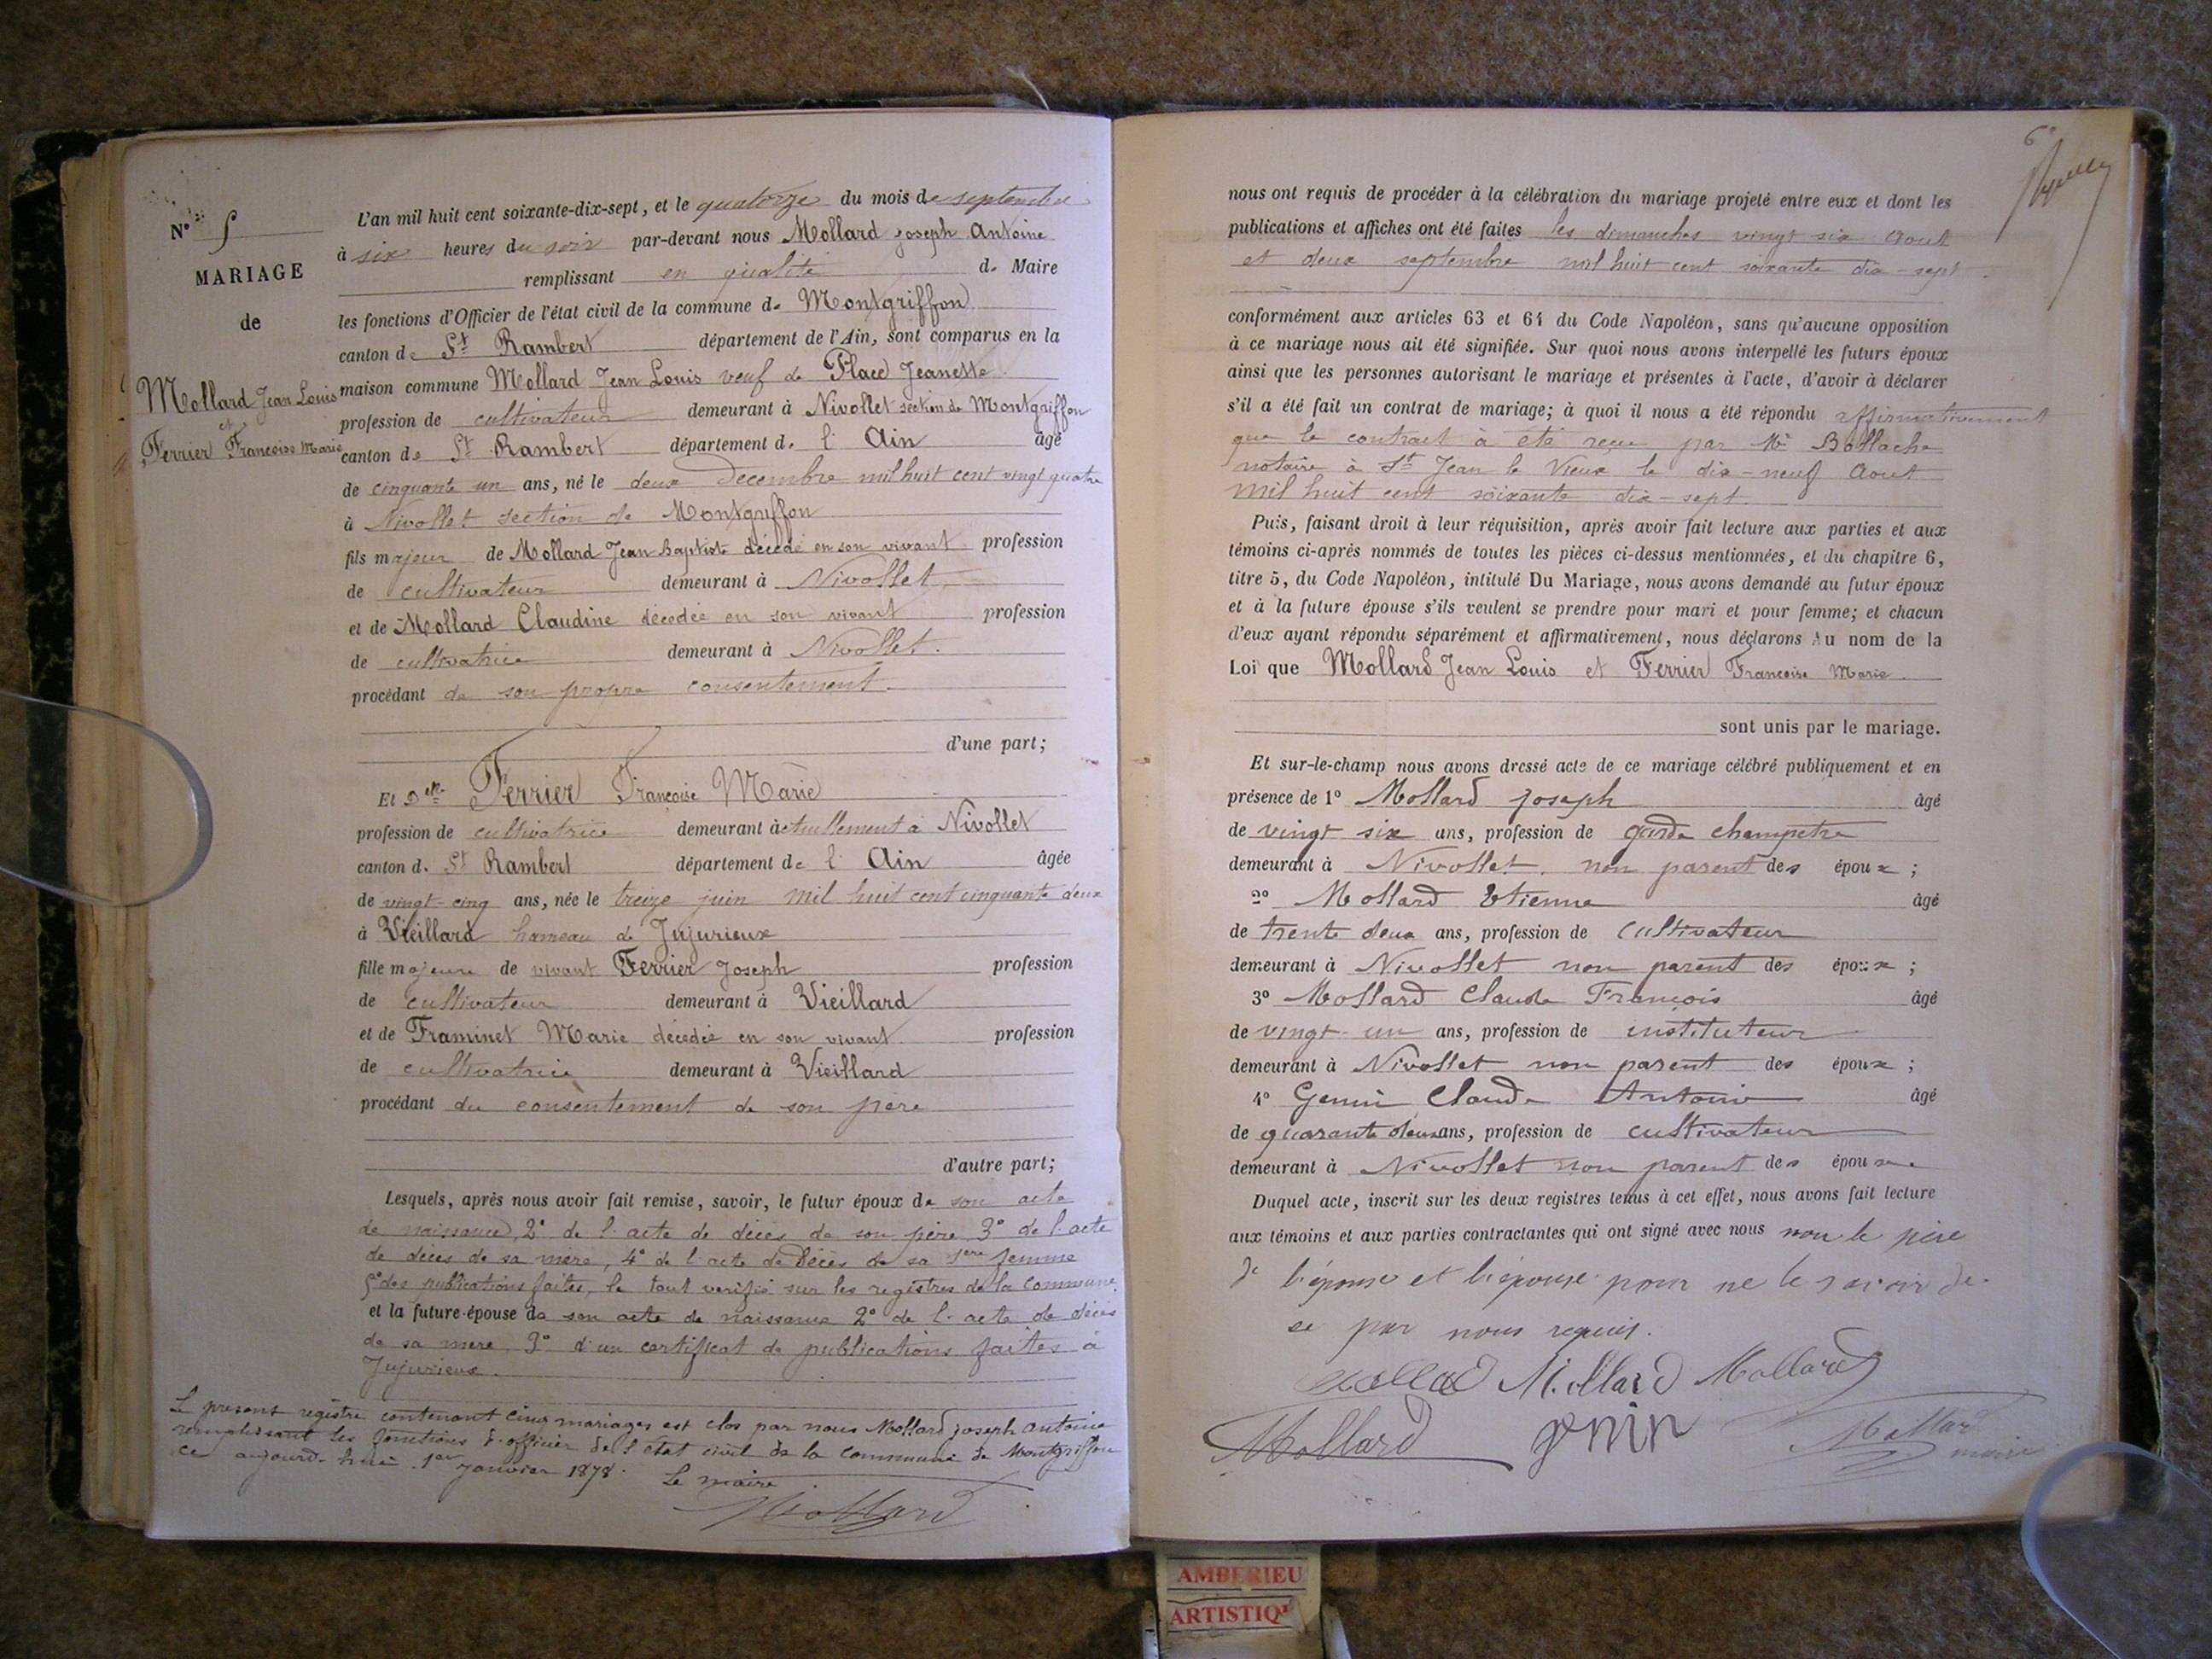 N° 5
MARIAGE
de
Mollard Jean Louis
et
Ferrier Françoise Marie
L'an mil huit cent soixante-dix-sept, et le quatorze du mois de septembre
à six heures du soir par-devant nous Mollard joseph Antoine
remplissant en qualité de Maire
les fonctions d'Officier de l'état civil de la commune de Montgriffon
canton de St Rambert département de l'Ain, sont comparus en la
maison commune Mollard Jean Louis veuf de Place Jeanette
profession de cultivateur demeurant à Nivollet section de Montgriffon
canton de St Rambert département de l'Ain âgé
de cinquante un ans, né le deux Decembre mil huit cent vingt quatre
à Nivollet section de Montgriffon
fils majeur de Mollard Jean Baptiste décédé en son vivant profession
de cultivateur demeurant à Nivollet
et de Mollard Claudine décedée en son vivant profession
de cultivatrice demeurant à Nivollet.
procédant de son propre consentement.
d'une part;
Et Dlle Ferrier Françoise Marie
profession de cultivatrice demeurant actuellement à Nivollet
canton de St Rambert département de l'Ain âgée
de vingt-cinq ans, née le treize juin mil huit cent cinquante deux
à Vieillard hameau de Jujurieux
fille majeure de vivant Ferrier Joseph profession
de cultivateur demeurant à Vieillard
et de Framinet Marie décedée en son vivant profession
de cultivatrice demeurant à Vieillard
procédant du consentement de son père
d'autre part;
Lesquels, après nous avoir fait remise, savoir, le futur époux de son acte
de naissance, 2° de l'acte de décès de son père 3° de l'acte
de décès de sa mère, 4° de l'acte de Décès de sa 1ère femme
5° des publications faites, le tout verifié sur les registres de la Commune
et la future épouse de son acte de naissance 2° de l'acte de décès
de sa mere, 3° d'un certificat de publications faites à
Jujurieux.
Le present registre contenant cinq mariages est clos par nous Mollard joseph Antoine
remplissant les fonctions d'officier de l'état civil de la commune de Montgriffon
ce aujourd'hui 1er Janvier 1878. Le maire
Mollard
6e
nous ont requis de procéder à la célébration du mariage projeté entre eux et dont les
publications et affiches ont été faites les dimanches vingt six Aout
et deux septembre mil huit cent soixante dix-sept.
conformément aux articles 63 et 64 du Code Napoléon, sans qu'aucune opposition
à ce mariage nous ait été signifiée. Sur quoi nous avons interpellé les futurs époux
ainsi que les personnes autorisant le mariage et présentes à l'acte, d'avoir à déclarer
s'il a été fait un contrat de mariage; à quoi il nous a été répondu affirmativement
que le contrat à été reçu par Me Bollache
notaire à St Jean le Vieux le dix-neuf Aout
mil huit cent soixante dix-sept.
Puis, faisant droit à leur réquisition, après avoir fait lecture aux parties et aux
témoins ci-après nommés de toutes les pièces ci-dessus mentionnées, et du chapitre 6,
titre 5, du Code Napoléon, intitulé Du Mariage, nous avons demandé au futur époux
et à la future épouse s'ils veulent se prendre pour mari et pour femme; et chacun
d'eux ayant répondu séparément et affirmativement, nous déclarons Au nom de la
Loi que Mollard Jean Louis et Ferrier Françoise Marie.
sont unis par le mariage.
Et sur-le-champ nous avons dressé acte de ce mariage célébré publiquement et en
présence de 1° Mollard joseph âgé
de vingt six ans, profession de garde champetre
demeurant à Nivollet. non parent des époux;
2° Mollard Etienne âgé
de trente deux ans, profession de cultivateur
demeurant à Nivollet non parent des époux;
3° Mollard Claude François âgé
de vingt-un ans, profession de instituteur
demeurant à Nivollet non parent des époux;
4° Genin Claude Antoine âgé
de quarante deux ans, profession de cultivateur
demeurant à Nivollet non parent des époux.
Duquel acte, inscrit sur les deux registres tenus à cet effet, nous avons fait lecture
aux témoins et aux parties contractantes qui ont signé avec nous non le père
de l'épouse et l'épouse pour ne le savoir de
ce par nous requis.
Mollard Mollard Mollard
Mollard genin Mollard
maire
AMBERIEU
ARTISTIQ